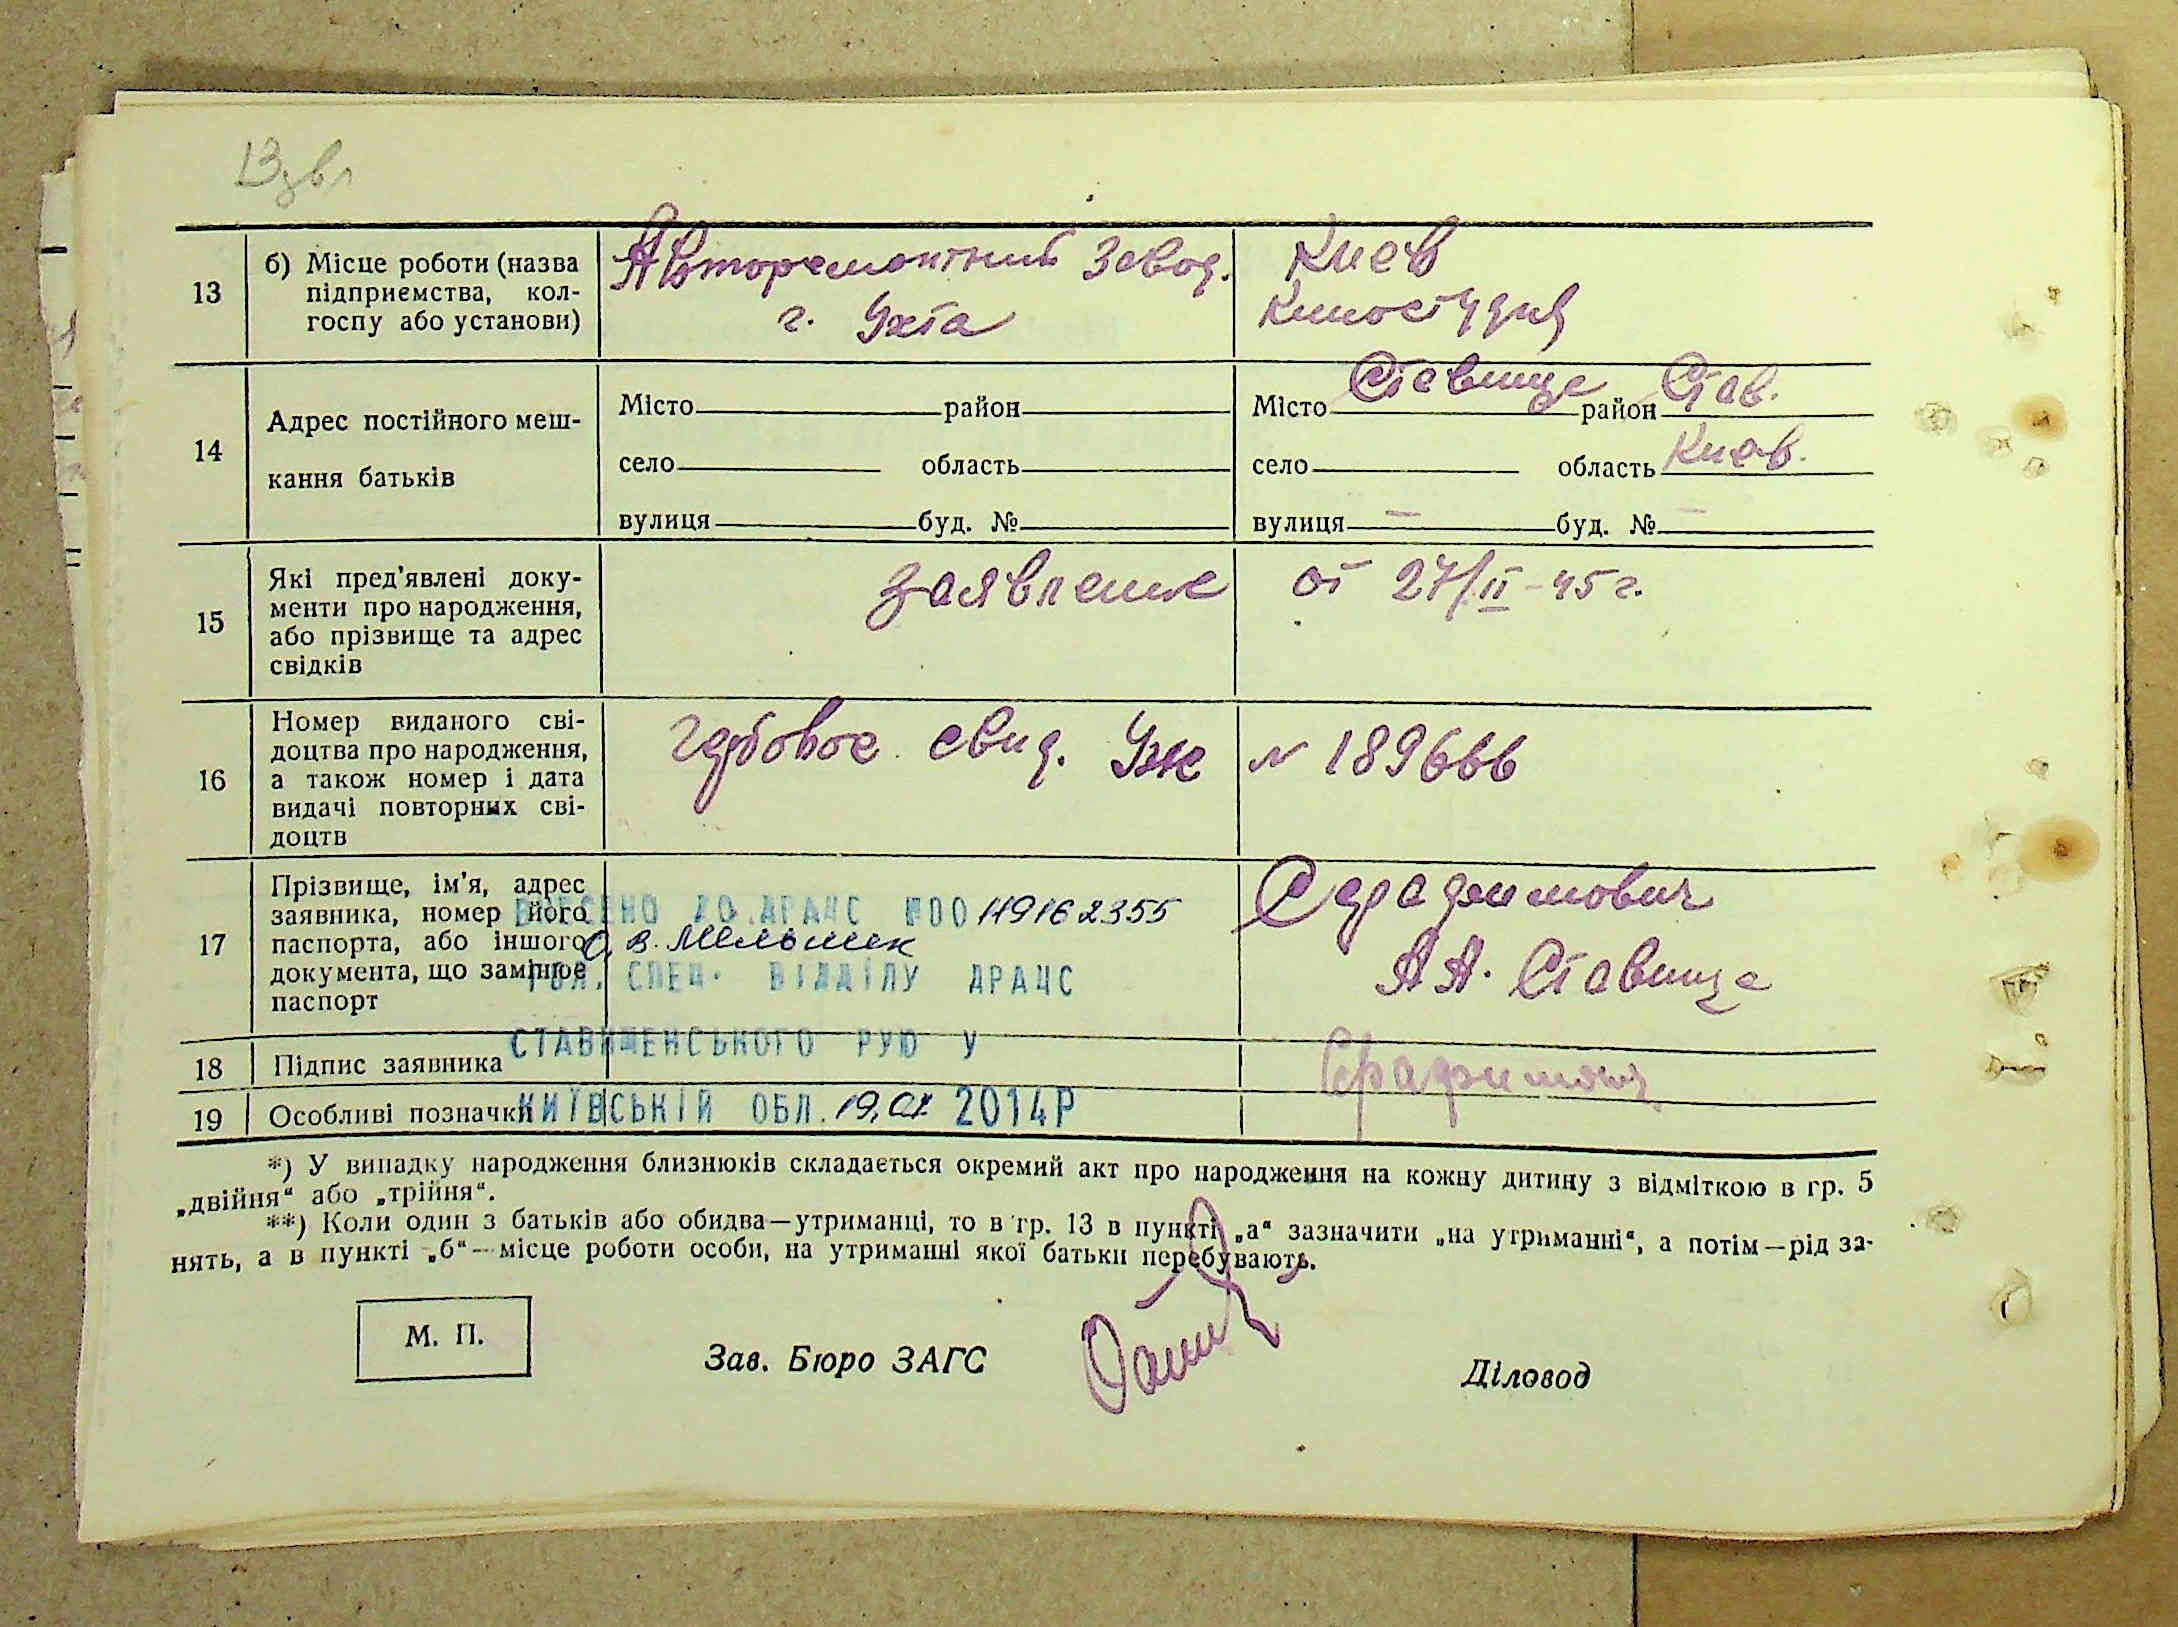 13 зв
13
б) Місце роботи (назва
підприємства, кол-
госпу або установи)
Авторемонтний Завод.
г. Ухта
Киев
Киностудия
14
Адрес постійного меш-
кання батьків
Місто район
село область
вулиця буд. №
Місто Ставище район Став.
село область Киев.
вулиця — буд. № —
15
Які пред'явлені доку-
менти про народження,
або прізвище та адрес
свідків
заявление от 27/II-45 г.
16
Номер виданого сві-
доцтва про народження,
а також номер і дата
видачі повторних сві-
доцтв
гербовое свид. УЖ N 189666
17
Прізвище, ім'я, адрес
заявника, номер його
паспорта, або іншого
документа, що замінює
паспорт
Серафимович
А А. Ставище
ВНЕСЕНО ДО ДРАЦС №00119162355
О.В. Мельник
ГОЛ. СПЕЦ. ВІДДІЛУ ДРАЦС
СТАВИЩЕНСЬКОГО РУЮ У
КИЇВСЬКІЙ ОБЛ. 2014Р
18
Підпис заявника
Серафимович
19
Особливі позначки
*) У випадку народження близнюків складається окремий акт про народження на кожну дитину з відміткою в гр. 5
„двійня“ або „трійня“.
**) Коли один з батьків або обидва—утриманці, то в гр. 13 в пункті „а“ зазначити „на утриманні“, а потім—рід за-
нять, а в пункті „б“—місце роботи особи, на утриманні якої батьки перебувають.
М. П.
Зав. Бюро ЗАГС
Діловод